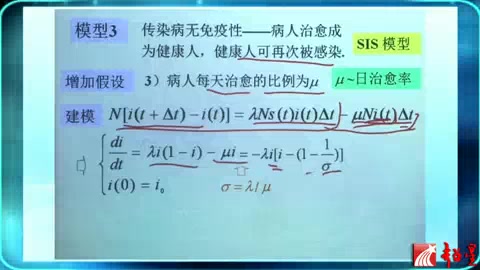 模型3
传染病无免疫性——病人治愈成
为健康人，健康人可再次被感染.
SIS 模型
增加假设
3）病人每天治愈的比例为μ
μ ~日治愈率
建模
N[i(t + Δt) − i(t)] = λNs(t)i(t)Δt − μNi(t)Δt
di/dt = λi(1 − i) − μi = −λi[i − (1 − 1/σ)]
i(0) = i₀
σ = λ / μ